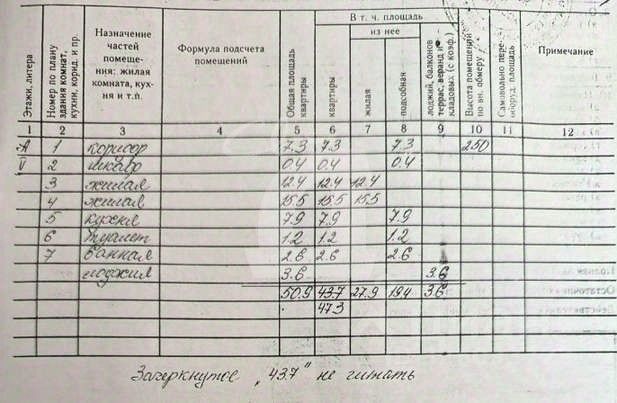 Этажи, литера
Номер по плану здания комнат, кухни, корид. и пр.
Назначение частей помещения: жилая комната, кухня и т.п.
Формула подсчета помещений
Общая площадь квартиры
В т. ч. площадь
квартиры
из нее
жилая
подсобная
лоджий, балконов террас, веранд и кладовых (с коэф.)
Высота помещений по вн. обмеру
Самовольно переоборуд. площадь
Примечание
1 2 3 4 5 6 7 8 9 10 11 12
А 1 коридор 7.3 7.3 7.3 250
V 2 шкаф 0.4 0.4 0.4
3 жилая 12.4 12.4 12.4
4 жилая 15.5 15.5 15.5
5 кухня 7.9 7.9 7.9
6 туалет 1.2 1.2 1.2
7 ванная 2.6 2.6 2.6
лоджия 3.6 3.6
50.9 43.7 27.9 19.4 3.6
47.3
Зачеркнутое „43.7" не читать